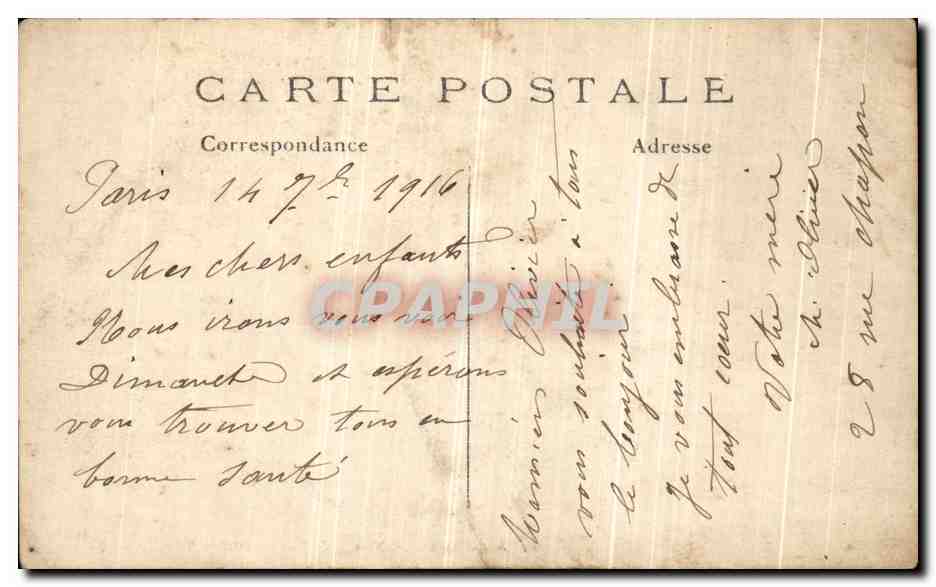 CARTE POSTALE
Correspondance
Adresse
Paris 14 7bre 1916
Mes chers enfants
Nous irons vous voir
Dimanche et espérons
vous trouver tous en
bonne santé
Olivier
vous souhaite à tous
le bonjour
je vous embrasse de
tout coeur.
Votre mère
M. Olivier
28 rue chapon
CPAPHIL